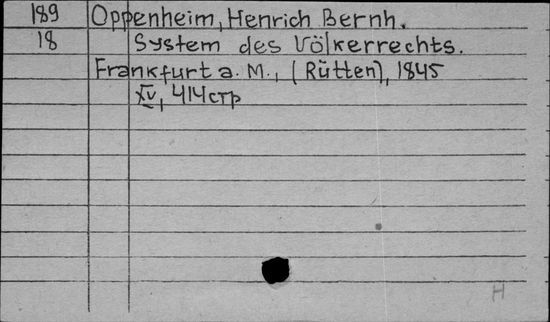 189 Oppenheim, Henrich Bernh.
18 System des Völkerrechts.
Frankfurt a. M., (Rütten), 1845
XV, 414 стр
H